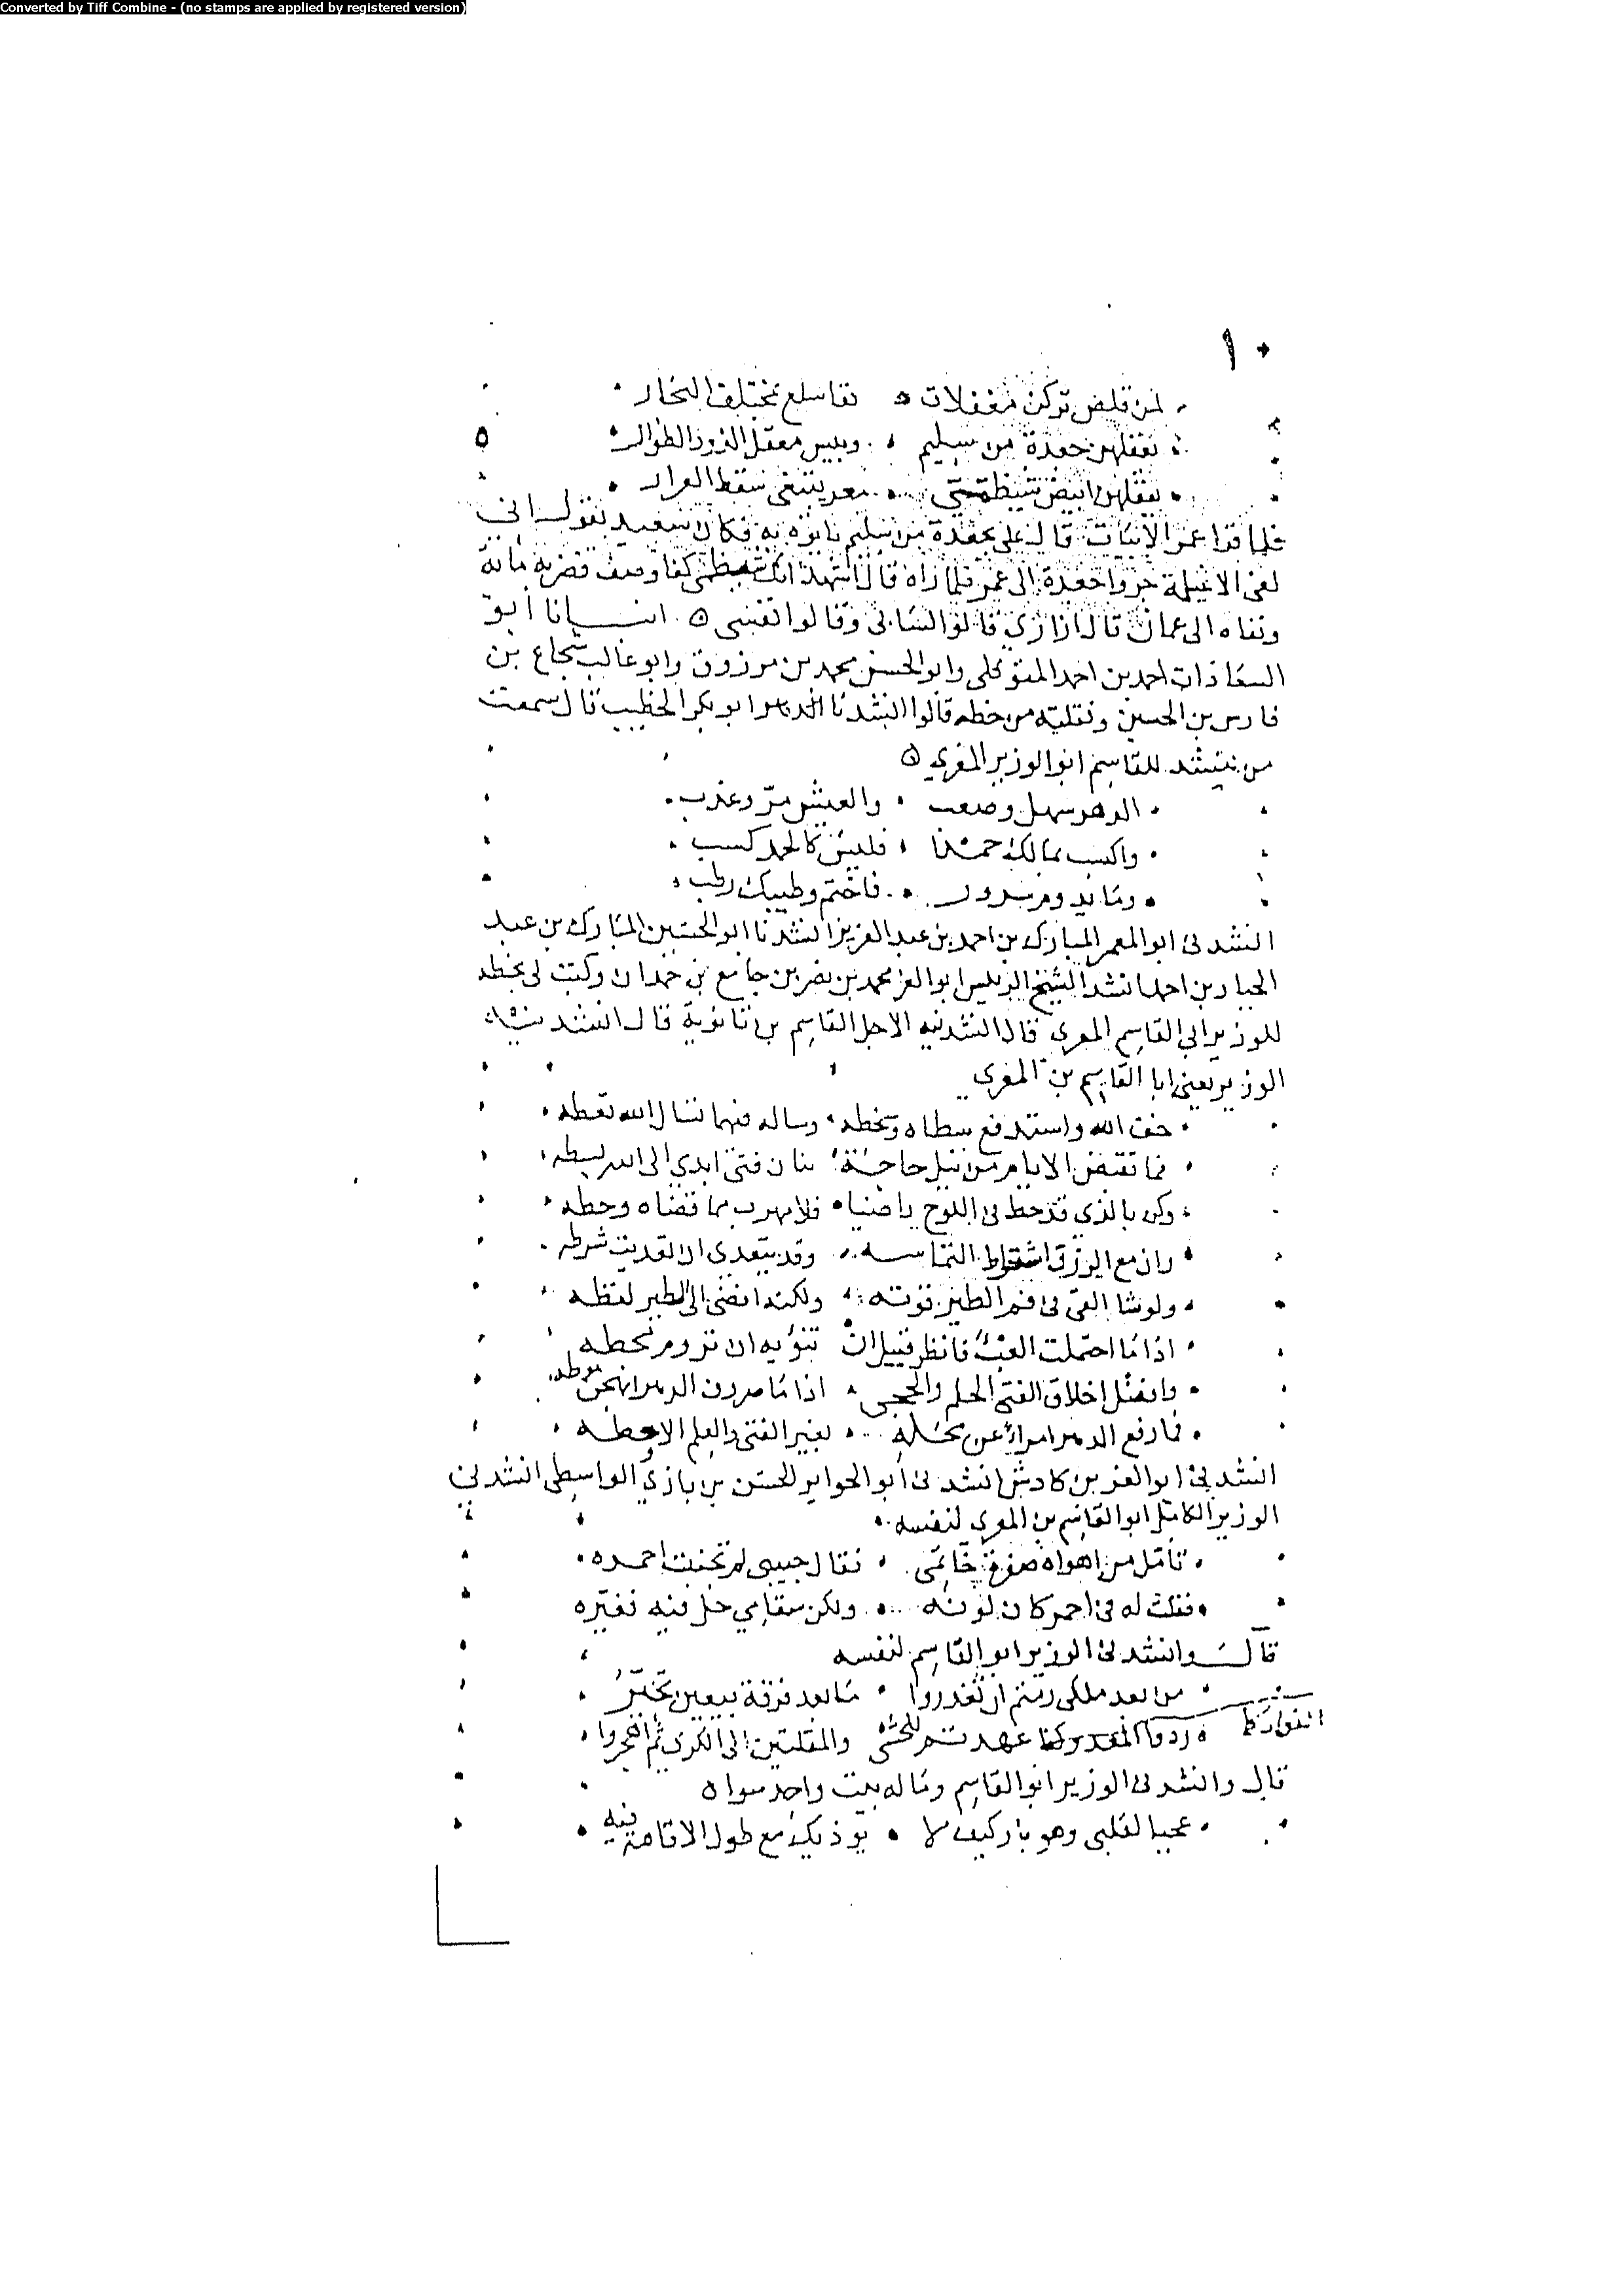 Converted by Tiff Combine - (no stamps are applied by registered version)
١٠
لمن قلص تركن معقلات قفا سلع بمختلف البحار
يعقلهن جعدة من سليم وبيس معقل الذود الطوار
يعقلهن ابيض شيظمي معر يبتغي سقط العرار
فلما قرا عمر الابيات قال على بجعدة من سليم فاتوه به فكان سعيد يقول اني
لفي الاغيلمة جروا جعدة الى عمر فلما راه قال اشهد انك شيظمي كما وصف فضربه مائة
ونفاه الى عمان قال
السعادات احمد بن احمد المتوكلي وابو الحسن محمد بن مرزوق وابو غالب شجاع بن
فارس بن الحسين ونقلته من خطه قالوا انشدنا ابو بكر الخطيب قال سمعت
من ينشد للقاسم ابو الوزير المغربي
الدهر سهل وصعب والعيش مر وعذب
واكسب بمالك حمدا فليس كالحمد كسب
وما يدوم سرور فاختم وطيبك رطب
انشدني ابو المعمر المبارك بن احمد بن عبد العزيز انشدنا ابو الحسين المبارك بن عبد
الجبار بن احمد انشد الشيخ الرييس ابو العز محمد بن نصر بن جامع بن حمدان وكتب لي بخطه
للوزير ابي القاسم المغربي قال انشدنيه الاجل القاسم بن قال انشدني
الوزير يعني ابا القاسم بن المغربي
خف الله واستدفع سطاه وسخطه وسايله فيما تسال الله تعطه
فما تقبض الايام من نيل حاجة بنان فتى ابدى الى الله بسطه
وكن بالذي قد خط في اللوح راضيا فلا مهرب مما قضاه وخطه
وان مع الرزق اشتراط التماسه وقد يتعدى ان تعديت شرطه
ولو شا القى في فم الطير قوته ولكنه افضى الى الطير لقطه
اذا ما احتملت العبء فانظر قبيل ان تنوء به ان تروم تحطه
وافضل اخلاق الفتى الحلم والحجى اذا ما صروف الدهر
فما رفع الدهر امرا عن محله بغير التقى والعلم الا وحطه
انشدني ابو العز بن كادش انشدني ابو الجوايز الحسن بن بازي الواسطي انشدني
الوزير الكامل ابو القاسم بن المغربي لنفسه
تامل من اهواه صفرة خاتمي فقال حبيبي لم تجنبت احمره
فقلت له من احمر كان لونه ولكن سقامي حل فيه فغيره
قال وانشدني الوزير ابو القاسم لنفسه
من بعد ملكي رمتم ان تغدروا ما بعد فرقة بيعين تخير
ردوا عهدتم للحشى والمقلتين الى الكرى ثم اهجروا
قال وانشدني الوزير ابو القاسم وما له بيت واحد سواه
عجبا لقلبي وهو نار كيف لا يوذيك مع طول الاقامة فيه